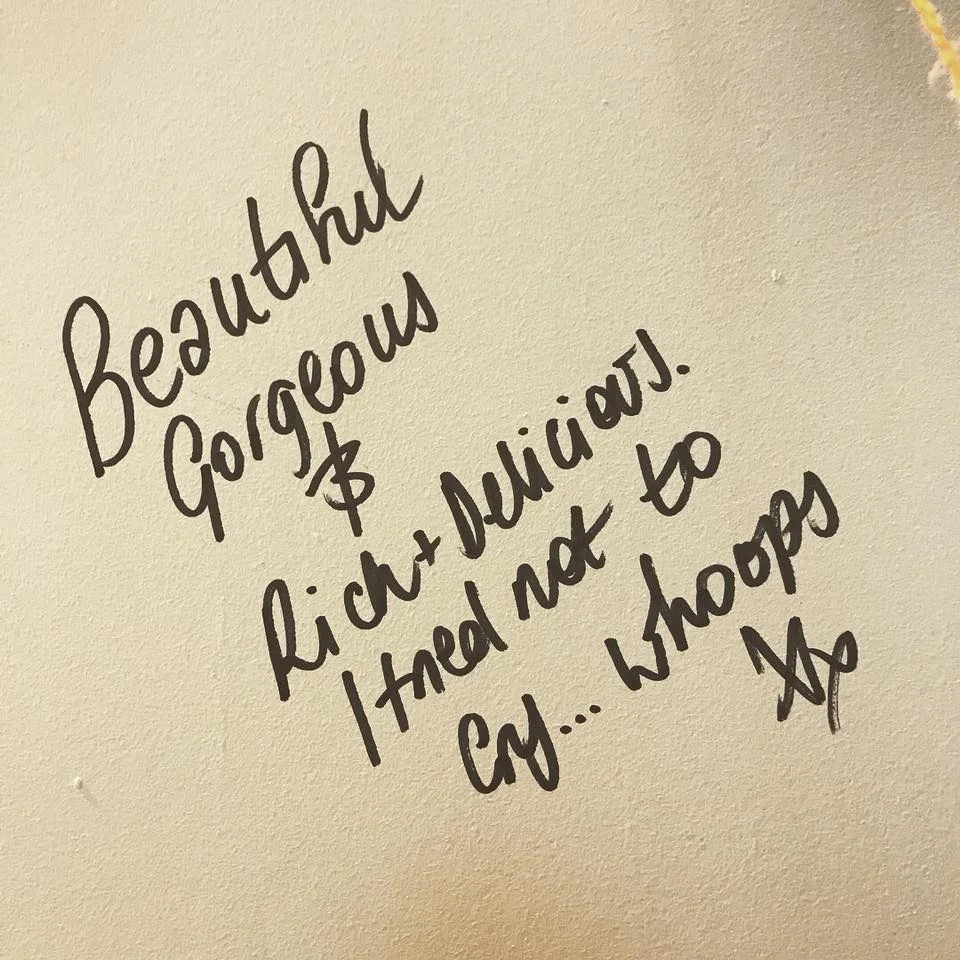 Beautiful
Gorgeous
&
Rich + Delicious.
I tried not to
Cry... whoops
Xx